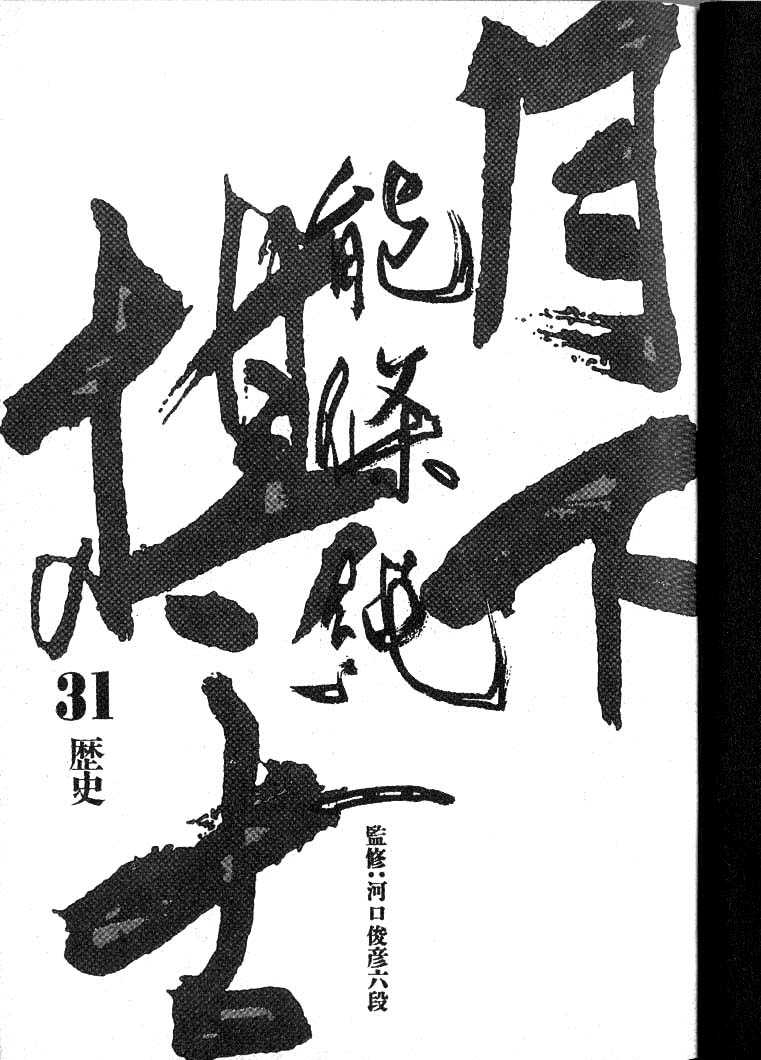 月下
棋士
能條純一
31
歴史
監修:河口俊彦六段